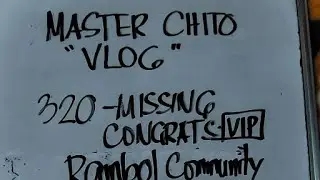 MASTER CHITO
"VLOG"
320-MISSING
CONGRATS VIP
Rambol Community